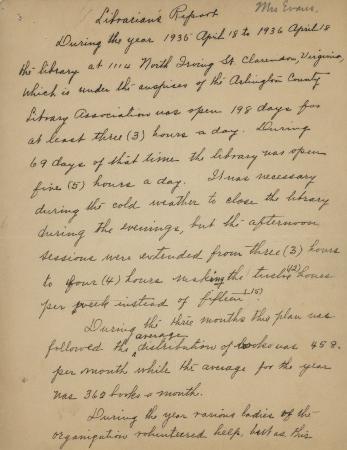 Mrs Evans.
Librarian's Report
During the year 1935 April 18 to 1936 April 18
the library at 1114 North Irving St. Clarendon, Virginia,
which is under the auspices of the Arlington County
Library Association was open 198 days for
at least three (3) hours a day. During
69 days of that time the library was open
five (5) hours a day. It was necessary
during the cold weather to close the library
during the evenings, but the afternoon
sessions were extended from three (3) hours
to four (4) hours making the twelve (12) hours
per week instead of fifteen (15).
During the three months this plan was
followed the average distribution of books was 458
per month while the average for the year
was 360 books a month.
During the year various ladies of the
organization volunteered help, but as this